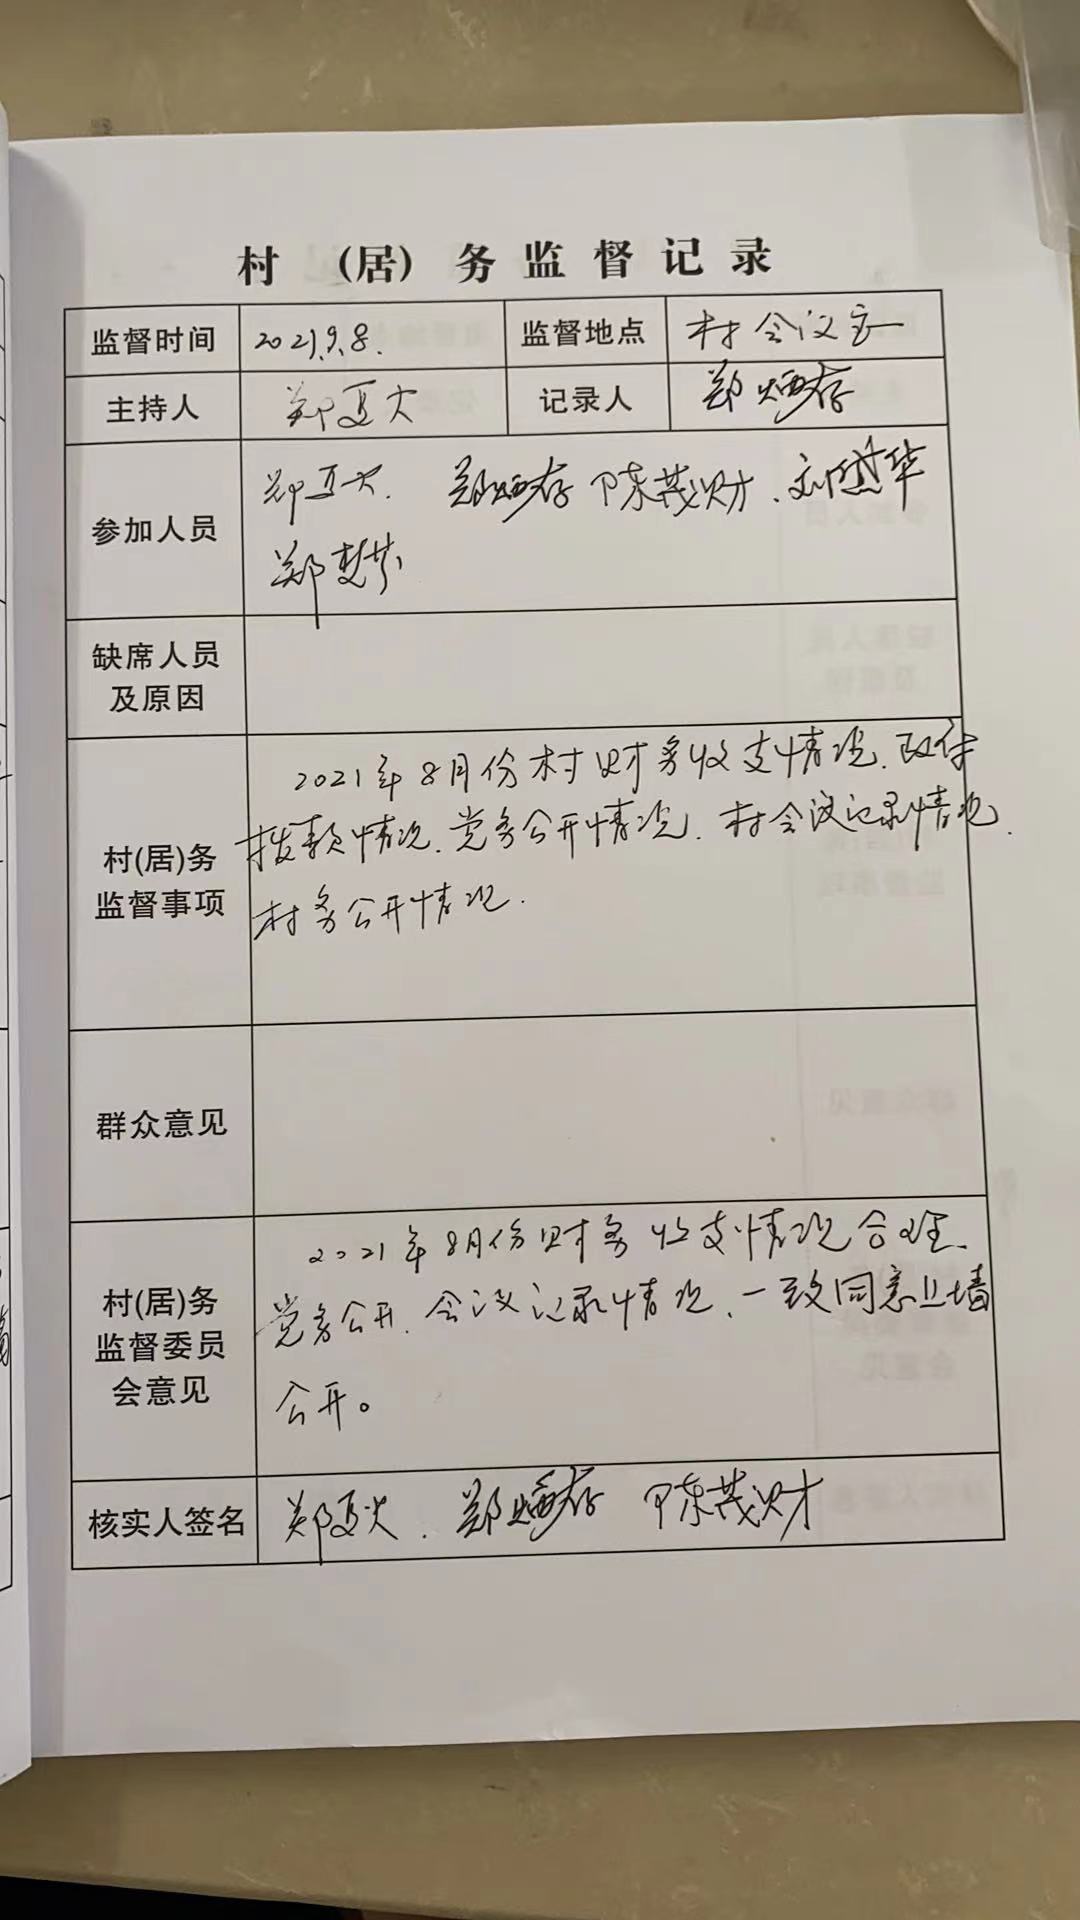 村 (居) 务 监 督 记 录
监督时间 2021.9.8. 监督地点 村会议室
主持人 郑夏 记录人 郑 存
参加人员 郑夏 郑 存 陈茂财、刘 华
郑楚芬
缺席人员
及原因
2021年8月份村财务收支情况、政府
拨款情况、党务公开情况、村会议记录情况、
村务公开情况.
村(居)务
监督事项
群众意见
2021年8月份财务收支情况合理、
党务公开、会议记录情况、一致同意上墙
公开。
村(居)务
监督委员
会意见
核实人签名 郑夏 、郑 存 陈茂财